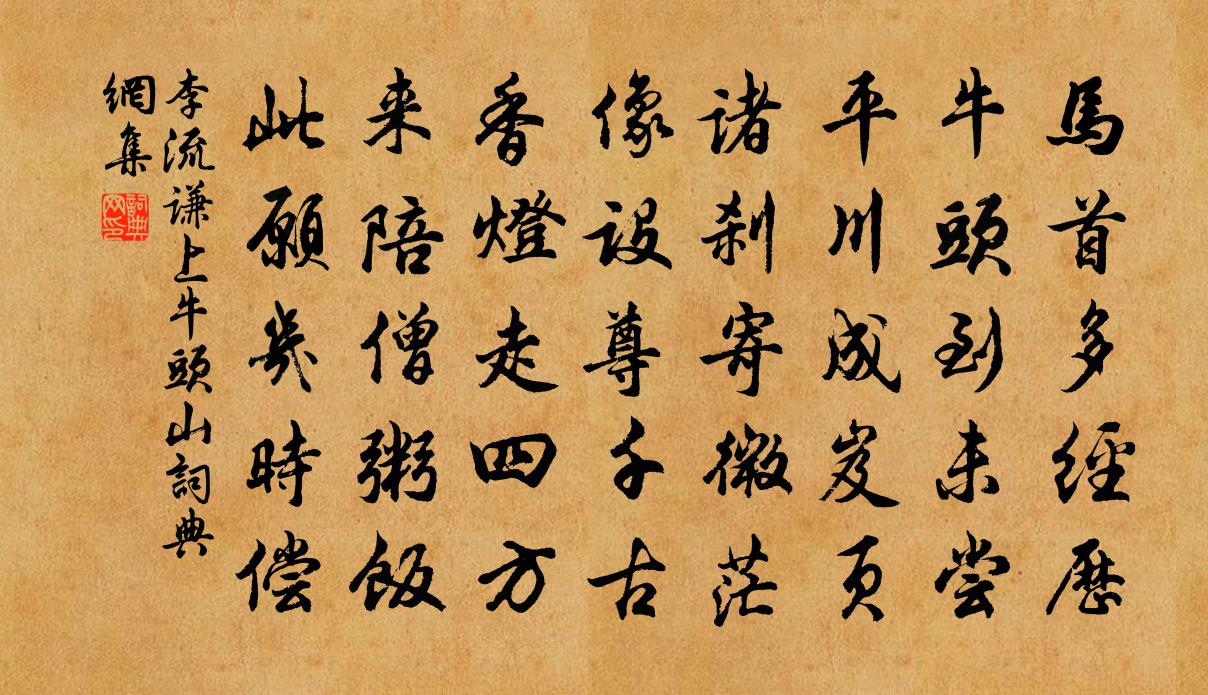 馬首多經歷
牛頭到未嘗
平川成岌页
諸刹寄微茫
像設尊千古
香燈走四方
来陪僧粥飯
此願幾時償
李流謙上牛頭山詞典
網集
詞典
网印